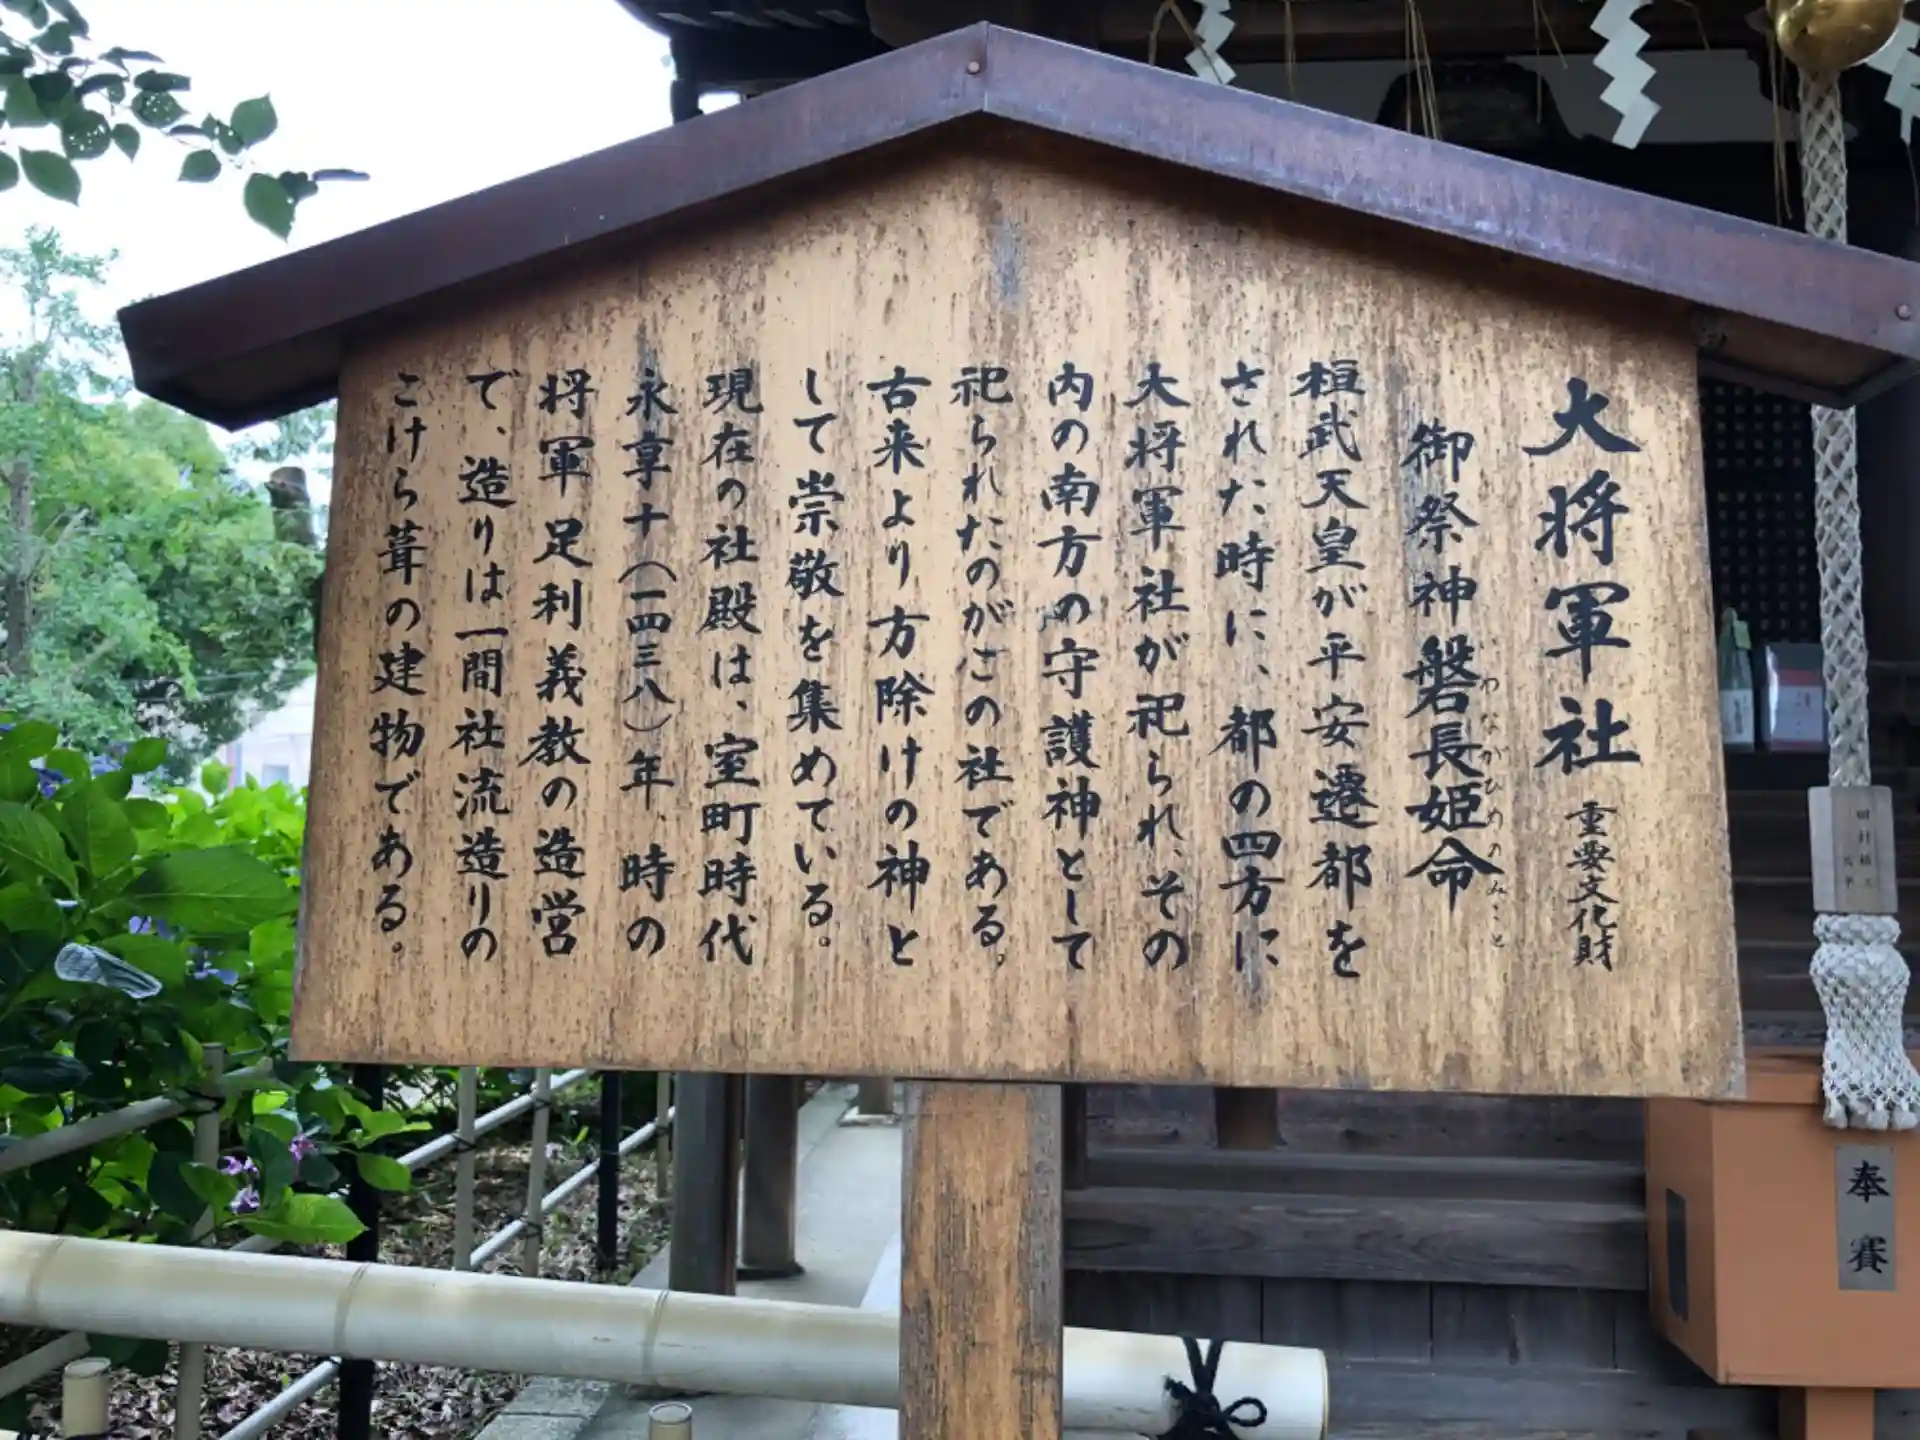 大将軍社 重要文化財
御祭神 磐長姫命
いわながひめのみこと
桓武天皇が平安遷都を
された時に、都の四方に
大将軍社が祀られ、その
内の南方の守護神として
祀られたのがこの社である。
古来より方除けの神と
して崇敬を集めている。
現在の社殿は、室町時代
永享十(一四三八)年、時の
将軍足利義教の造営
で、造りは一間社流造りの
こけら葺の建物である。
奉賽